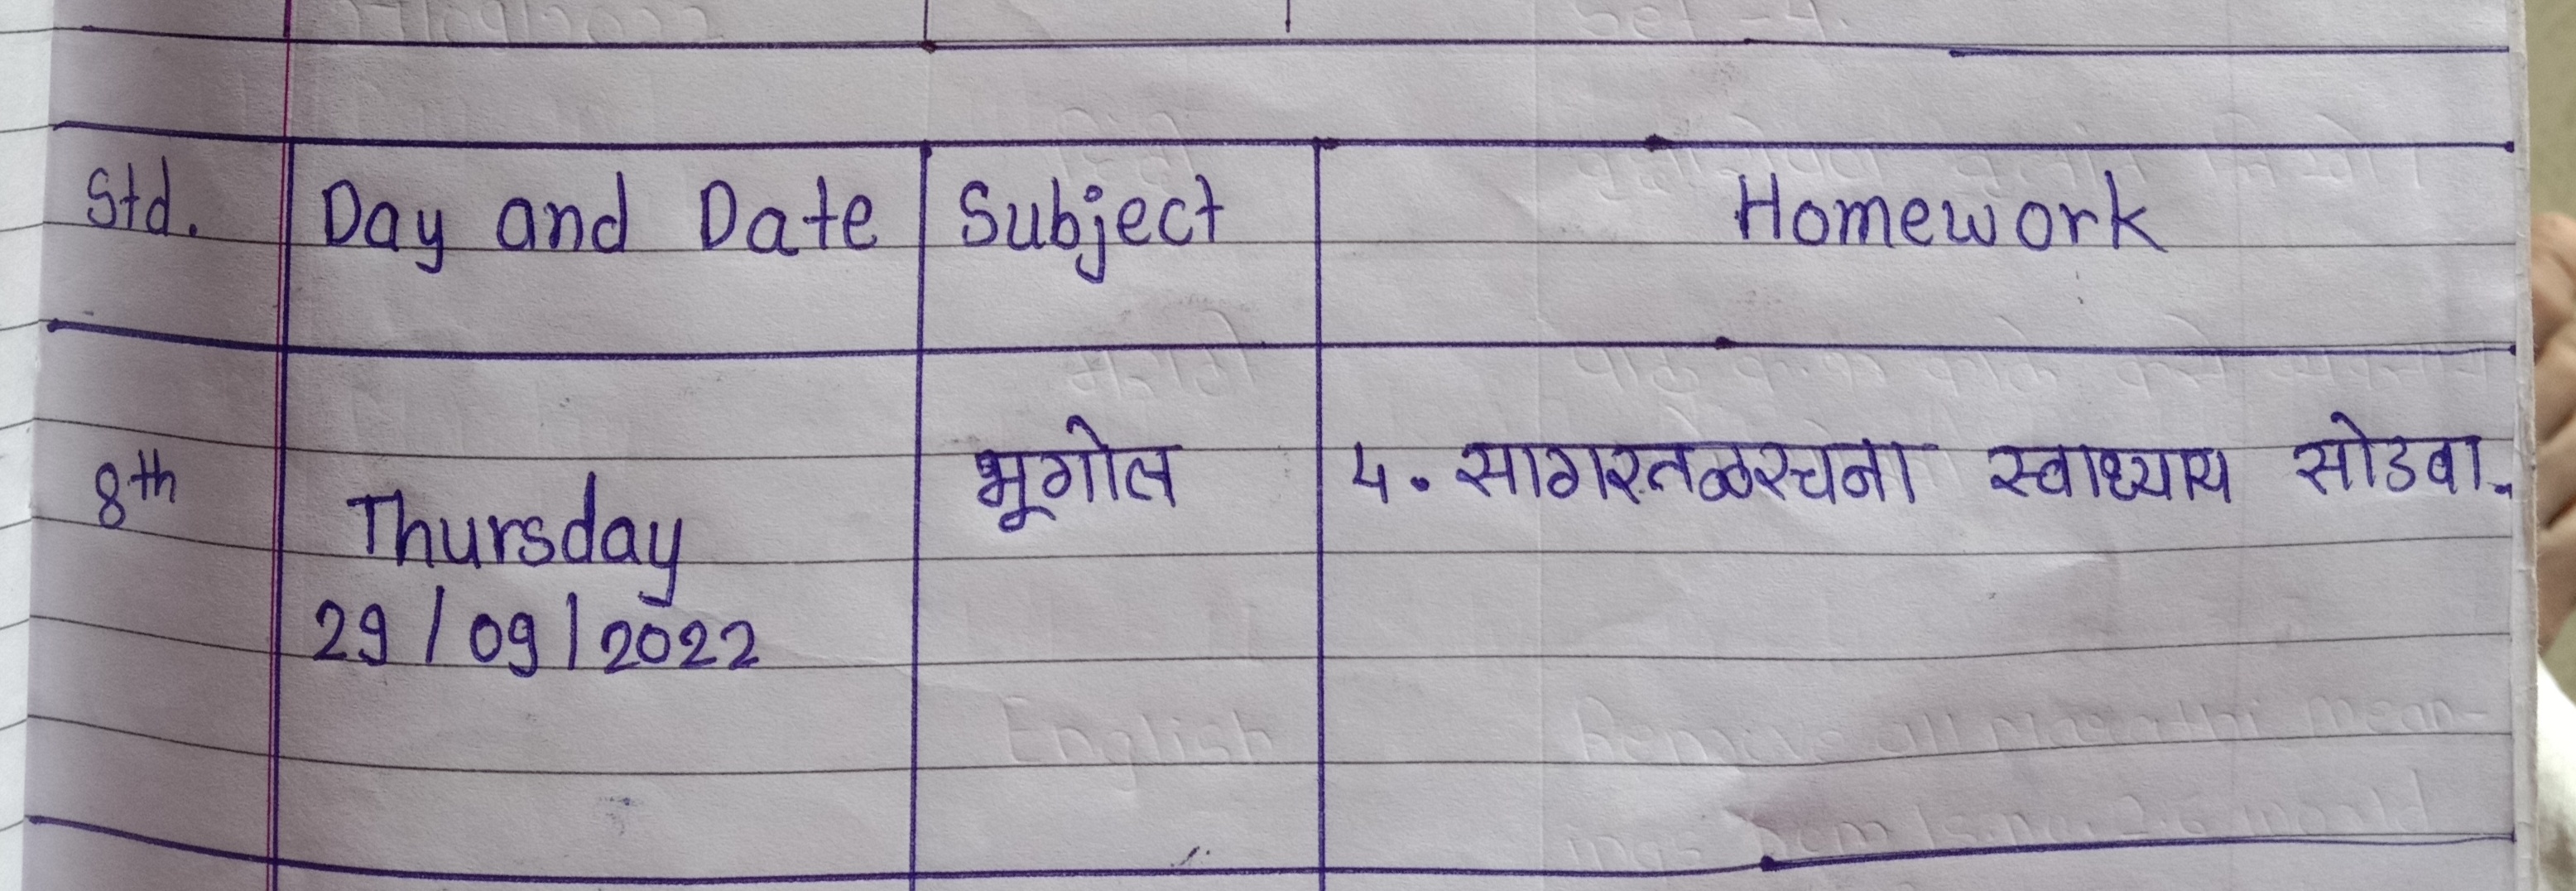 Std. Day and Date Subject Homework
8th Thursday भूगोल 4. सागरतळरचना स्वाध्याय सोडवा.
29/09/2022